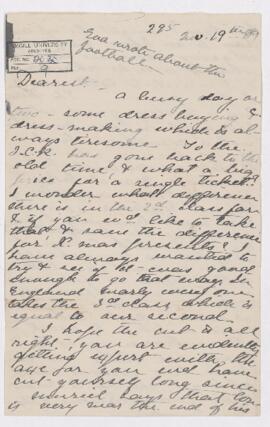 295 Nov. 19
Eva wrote about the
football -
McGILL UNIVERSITY
ARCHIVES
ACC. NO.
REF. 9
Dearest -
a busy day or
two - some dress buying &
dress-making which is al-
ways tiresome. So the
I.C.R. has gone back to the
old time, & what a big
price for a single ticket.
I wonder what difference
there is in the 2nd class fare
& if you wd. like to take
that & save the difference
for X'mas presents? I
have always wanted to
try & see if it was good
enough to go that way. In
England nearly everyone
takes the 3rd class which is
equal to our second.
I hope the cut is all
right - you are evidently
getting expert with the
axe for you wd. have
cut yourself long since
says that
is very near the end of his